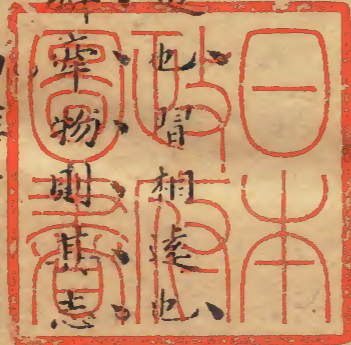 日本
政府
圖書
也習相遠也
牽物則其志